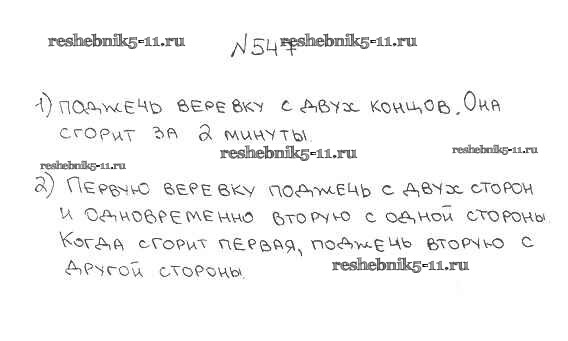 reshebnik5-11.ru
№547 reshebnik5-11.ru
1) поджечь веревку с двух концов. Она
сгорит за 2 минуты.
reshebnik5-11.ru
reshebnik5-11.ru
reshebnik5-11.ru
2) Первую веревку поджечь с двух сторон
и одновременно вторую с одной стороны.
Когда сгорит первая, поджечь вторую с
другой стороны.
reshebnik5-11.ru